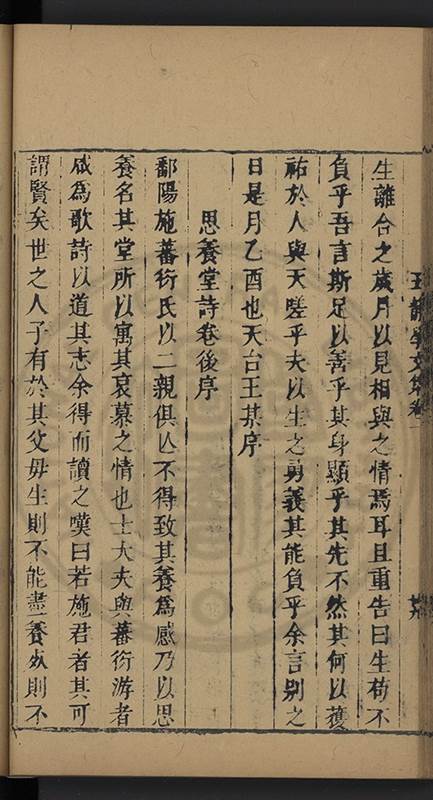 王靜學文集卷一
生離合之歲月以見相與之情焉耳且重告曰生苟不
負乎吾言斯足以善乎其身顯乎其先不然其何以獲
祐於人與天嗟乎夫以生之勇義其能負乎余言別之
日是月乙酉也天台王某序
思養堂詩卷後序
鄱陽施蕃衍氏以二親俱亾不得致其養爲感乃以思
養名其堂所以寓其哀慕之情也士大夫與蕃衍游者
咸為歌詩以道其志余得而讀之嘆曰若施君者其可
謂賢矣世之人子有於其父毋生則不能盡養歿則不